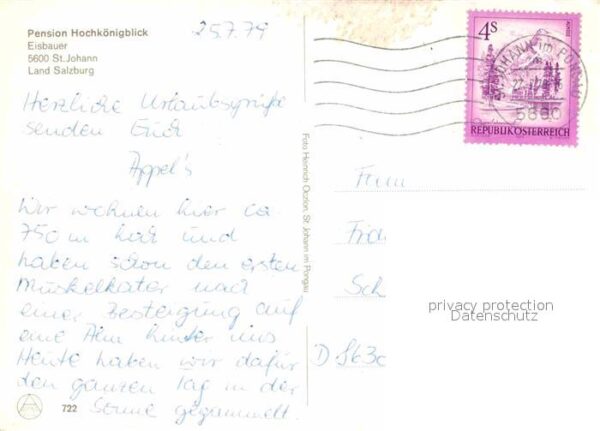 Pension Hochkönigblick
Eisbauer
5600 St. Johann
Land Salzburg
25.7.79
Herzliche Urlaubsgrüße
senden Euch
Appel's
Wir wohnen hier ca.
750 m hoch und
haben schon den ersten
Muskelkater nach
einer Besteigung auf
eine Alm hinter uns
Heute haben wir dafür
den ganzen Tag in der
Sonne gegammelt
722
Foto Heinrich Oczlon St. Johann im Pongau
4S
REPUBLIK ÖSTERREICH
JOHANN IM PONGAU
Fam
Sch
privacy protection
Datenschutz